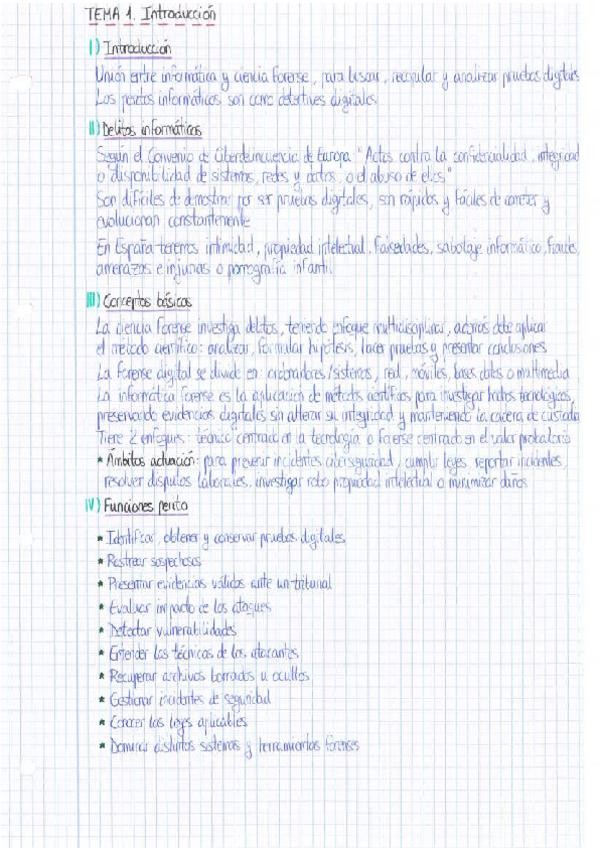 TEMA 1. Introducción
I) Introducción
Unión entre informática y ciencia forense, para buscar, recopilar y analizar pruebas digitales
Los peritos informáticos son como detectives digitales
II) Delitos informáticos
Según el Convenio de Ciberdelincuencia de Europa "Actos contra la confidencialidad, integridad
o disponibilidad de sistemas, redes y datos, o el abuso de ellos"
Son difíciles de demostrar por ser pruebas digitales, son rápidos y fáciles de cometer y
evolucionan constantemente
En España tenemos intimidad, propiedad intelectual, falsedades, sabotaje informático, fraude,
amenazas e injurias o pornografía infantil
III) Conceptos básicos
La ciencia forense investiga delitos, teniendo enfoque multidisciplinar, además debe aplicar
el método científico: analizar, formular hipótesis, hacer pruebas y presentar conclusiones
La forense digital se divide en: ordenadores/sistemas, red, móviles, bases datos o multimedia
La informática forense es la aplicación de métodos científicos para investigar hechos tecnológicos,
preservando evidencias digitales sin alterar su integridad y manteniendo la cadena de custodia
Tiene 2 enfoques: técnico centrado en la tecnología o forense centrado en el valor probatorio
* Ámbitos actuación: para prevenir incidentes ciberseguridad, cumplir leyes reportar incidentes,
resolver disputas laborales, investigar robo propiedad intelectual o minimizar daños
IV) Funciones perito
* Identificar, obtener y conservar pruebas digitales
* Rastrear sospechosos
* Presentar evidencias válidas ante un tribunal
* Evaluar impacto de los ataques
* Detectar vulnerabilidades
* Entender las técnicas de los atacantes
* Recuperar archivos borrados u ocultos
* Gestionar incidentes de seguridad
* Conocer las leyes aplicables
* Dominar distintos sistemas y herramientas forenses